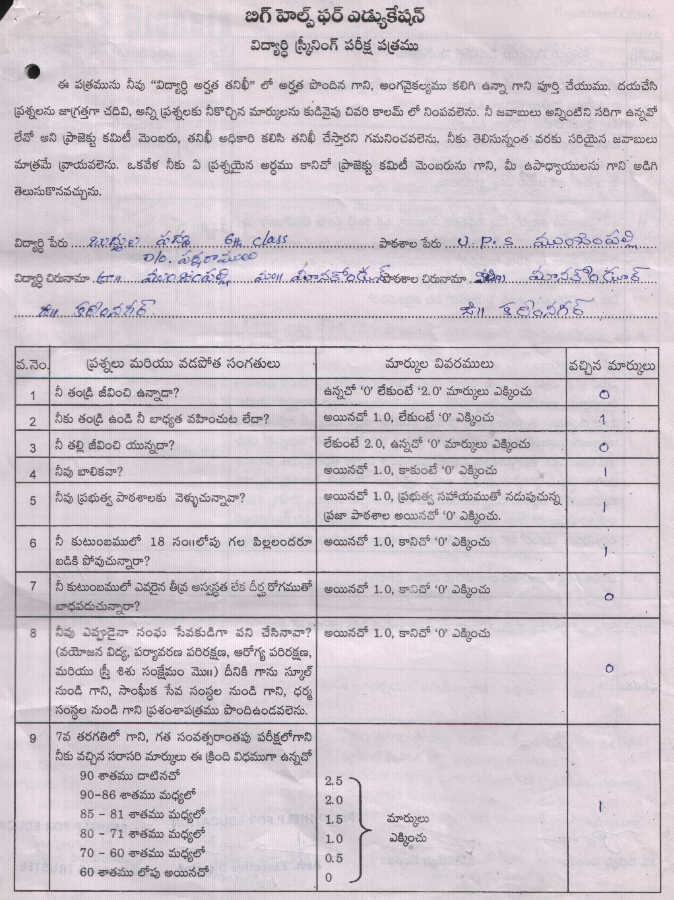 బిగ్ హెల్ప్ ఫర్ ఎడ్యుకేషన్
విద్యార్థి స్క్రీనింగ్ పరీక్ష పత్రము
ఈ పత్రమును నీవు "విద్యార్థి అర్హత తనిఖీ" లో అర్హత పొందిన గాని, అంగవైకల్యము కలిగి ఉన్నా గాని పూర్తి చేయుము. దయచేసి
ప్రశ్నలను జాగ్రత్తగా చదివి, అన్ని ప్రశ్నలకు నీకొచ్చిన మార్కులను కుడివైపు చివరి కాలమ్ లో నింపవలెను. నీ జవాబులు అన్నింటిని సరిగా ఉన్నవో
లేవో అని ప్రాజెక్టు కమిటీ మెంబరు, తనిఖీ అధికారి కలిసి తనిఖీ చేస్తారని గమనించవలెను. నీకు తెలిసున్నంత వరకు సరియైన జవాబులు
మాత్రమే వ్రాయవలెను. ఒకవేళ నీకు ఏ ప్రశ్నయైన అర్థము కానిచో ప్రాజెక్టు కమిటీ మెంబరును గాని, మీ ఉపాధ్యాయులను గాని అడిగి
తెలుసుకొనవచ్చును.
విద్యార్థి పేరు 6th class పాఠశాల పేరు U.P.S
D/o.
విద్యార్థి చిరునామా పాఠశాల చిరునామా మానకొండూర్
జి॥ కరీంనగర్ జి॥ కరీంనగర్
వ.నెం. ప్రశ్నలు మరియు వడపోత సంగతులు మార్కుల వివరములు వచ్చిన మార్కులు
1 నీ తండ్రి జీవించి ఉన్నాడా? ఉన్నచో '0' లేకుంటే '2.0' మార్కులు ఎక్కించు 0
2 నీకు తండ్రి ఉండి నీ బాధ్యత వహించుట లేదా? అయినచో 1.0, లేకుంటే '0' ఎక్కించు 1
3 నీ తల్లి జీవించి యున్నదా? లేకుంటే 2.0, ఉన్నచో '0' మార్కులు ఎక్కించు 0
4 నీవు బాలికవా? అయినచో 1.0, కాకుంటే '0' ఎక్కించు 1
5 నీవు ప్రభుత్వ పాఠశాలకు వెళ్ళుచున్నావా? అయినచో 1.0, ప్రభుత్వ సహాయముతో నడుపుచున్న
ప్రజా పాఠశాల అయినచో '0' ఎక్కించు. 1
6 నీ కుటుంబములో 18 సం॥లోపు గల పిల్లలందరూ అయినచో 1.0, కానిచో '0' ఎక్కించు
బడికి పోవుచున్నారా? 1
7 నీ కుటుంబములో ఎవరైన తీవ్ర అస్వస్థత లేక దీర్ఘ రోగముతో అయినచో 1.0, కానిచో '0' ఎక్కించు
బాధపడుచున్నారా? 0
8 నీవు ఎప్పుడైనా సంఘ సేవకుడిగా పని చేసినావా? అయినచో 1.0, కానిచో '0' ఎక్కించు
(వయోజన విద్య, పర్యావరణ పరిరక్షణ, ఆరోగ్య పరిరక్షణ,
మరియు స్త్రీ శిశు సంక్షేమం మొ॥) దీనికి గాను స్కూల్ 0
నుండి గాని, సాంఘీక సేవ సంస్థల నుండి గాని, ధర్మ
సంస్థల నుండి గాని ప్రశంశాపత్రము పొందిఉండవలెను.
9 7వ తరగతిలో గాని, గత సంవత్సరాంతపు పరీక్షలోగాని
నీకు వచ్చిన సరాసరి మార్కులు ఈ క్రింది విధముగా ఉన్నచో
90 శాతము దాటినచో 2.5
90-86 శాతము మధ్యలో 2.0
85 - 81 శాతము మధ్యలో 1.5 మార్కులు 1
80 - 71 శాతము మధ్యలో 1.0 ఎక్కించు
70 - 60 శాతము మధ్యలో 0.5
60 శాతము లోపు అయినచో 0